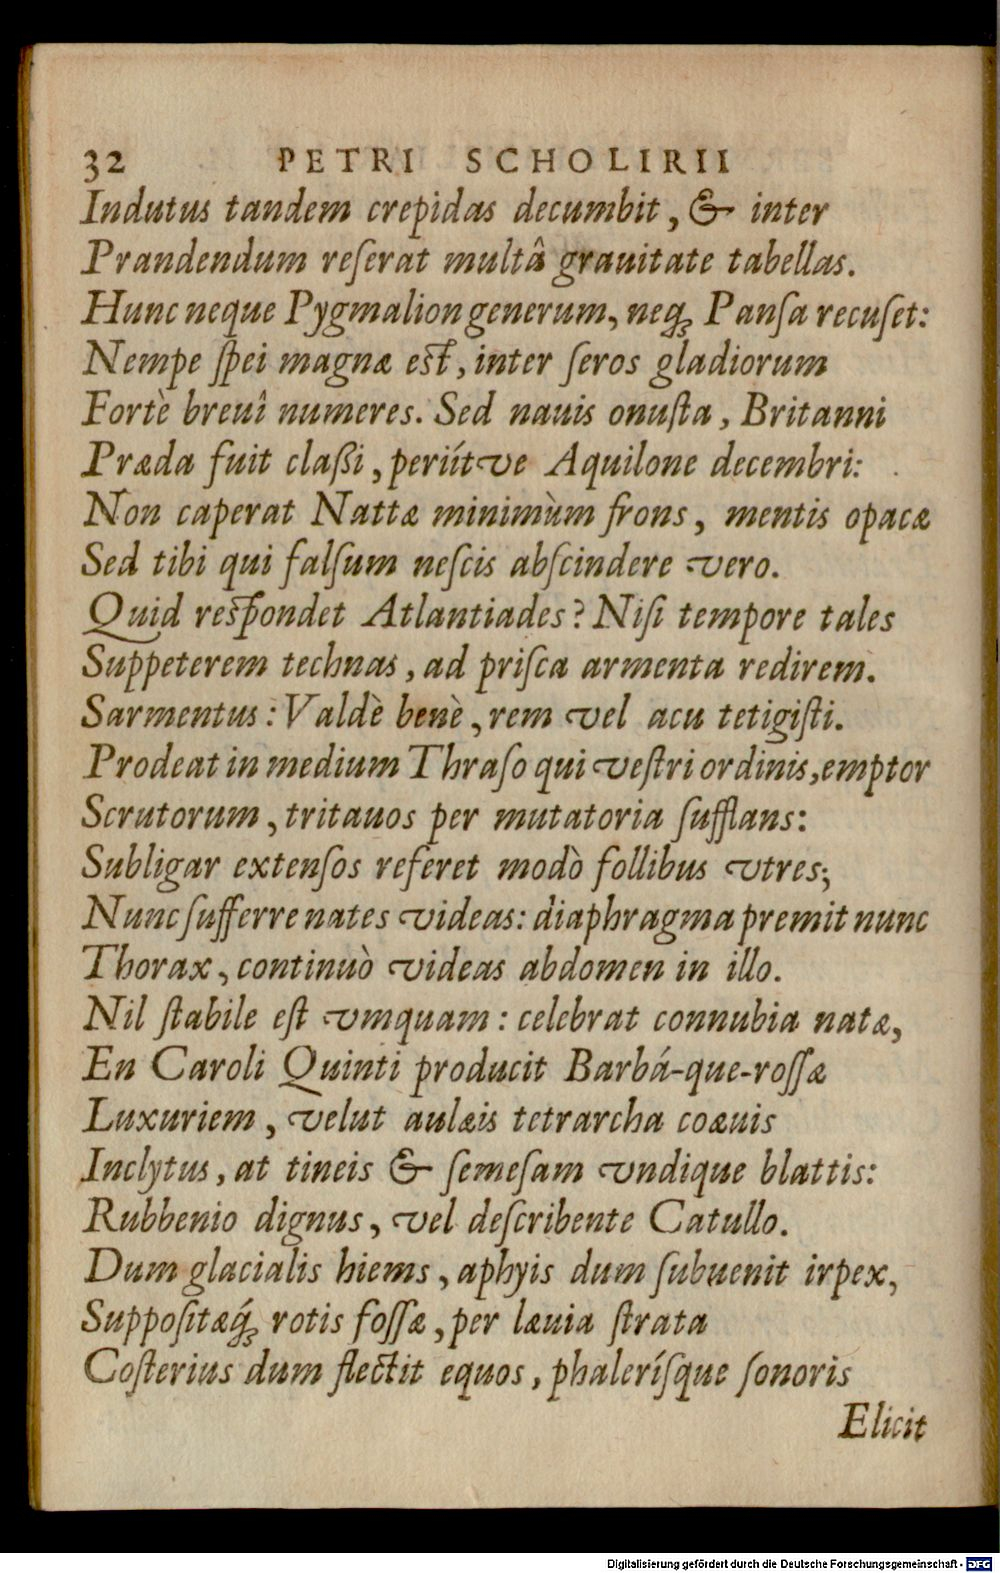 32 PETRI SCHOLIRII
Indutus tandem crepidas decumbit, & inter
Prandendum reſerat multâ grauitate tabellas.
Hunc neque Pygmalion generum, neq́; Panſa recuſet:
Nempe ſpei magnæ eſt, inter ſeros gladiorum
Fortè breuî numeres. Sed nauis onuſta, Britanni
Præda fuit claßi, periítve Aquilone decembri:
Non caperat Nattæ minimùm frons, mentis opacæ
Sed tibi qui falſum neſcis abſcindere vero.
Quid reſpondet Atlantiades? Niſi tempore tales
Suppeterem technas, ad priſca armenta redirem.
Sarmentus: Valdè benè, rem vel acu tetigiſti.
Prodeat in medium Thraſo qui veſtri ordinis, emptor
Scrutorum, tritauos per mutatoria ſufflans:
Subligar extenſos referet modò follibus vtres;
Nunc ſufferre nates videas: diaphragma premit nunc
Thorax, continuò videas abdomen in illo.
Nil ſtabile eſt vmquam: celebrat connubia natæ,
En Caroli Quinti producit Barbá-que-roſſæ
Luxuriem, velut aulæis tetrarcha coæuis
Inclytus, at tineis & ſemeſam vndique blattis:
Rubbenio dignus, vel deſcribente Catullo.
Dum glacialis hiems, aphyis dum ſubuenit irpex,
Suppoſitæq́; rotis foſſæ, per læuia ſtrata
Coſterius dum flectit equos, phaleríſque ſonoris
Elicit
Digitalisierung gefördert durch die Deutsche Forschungsgemeinschaft - DFG